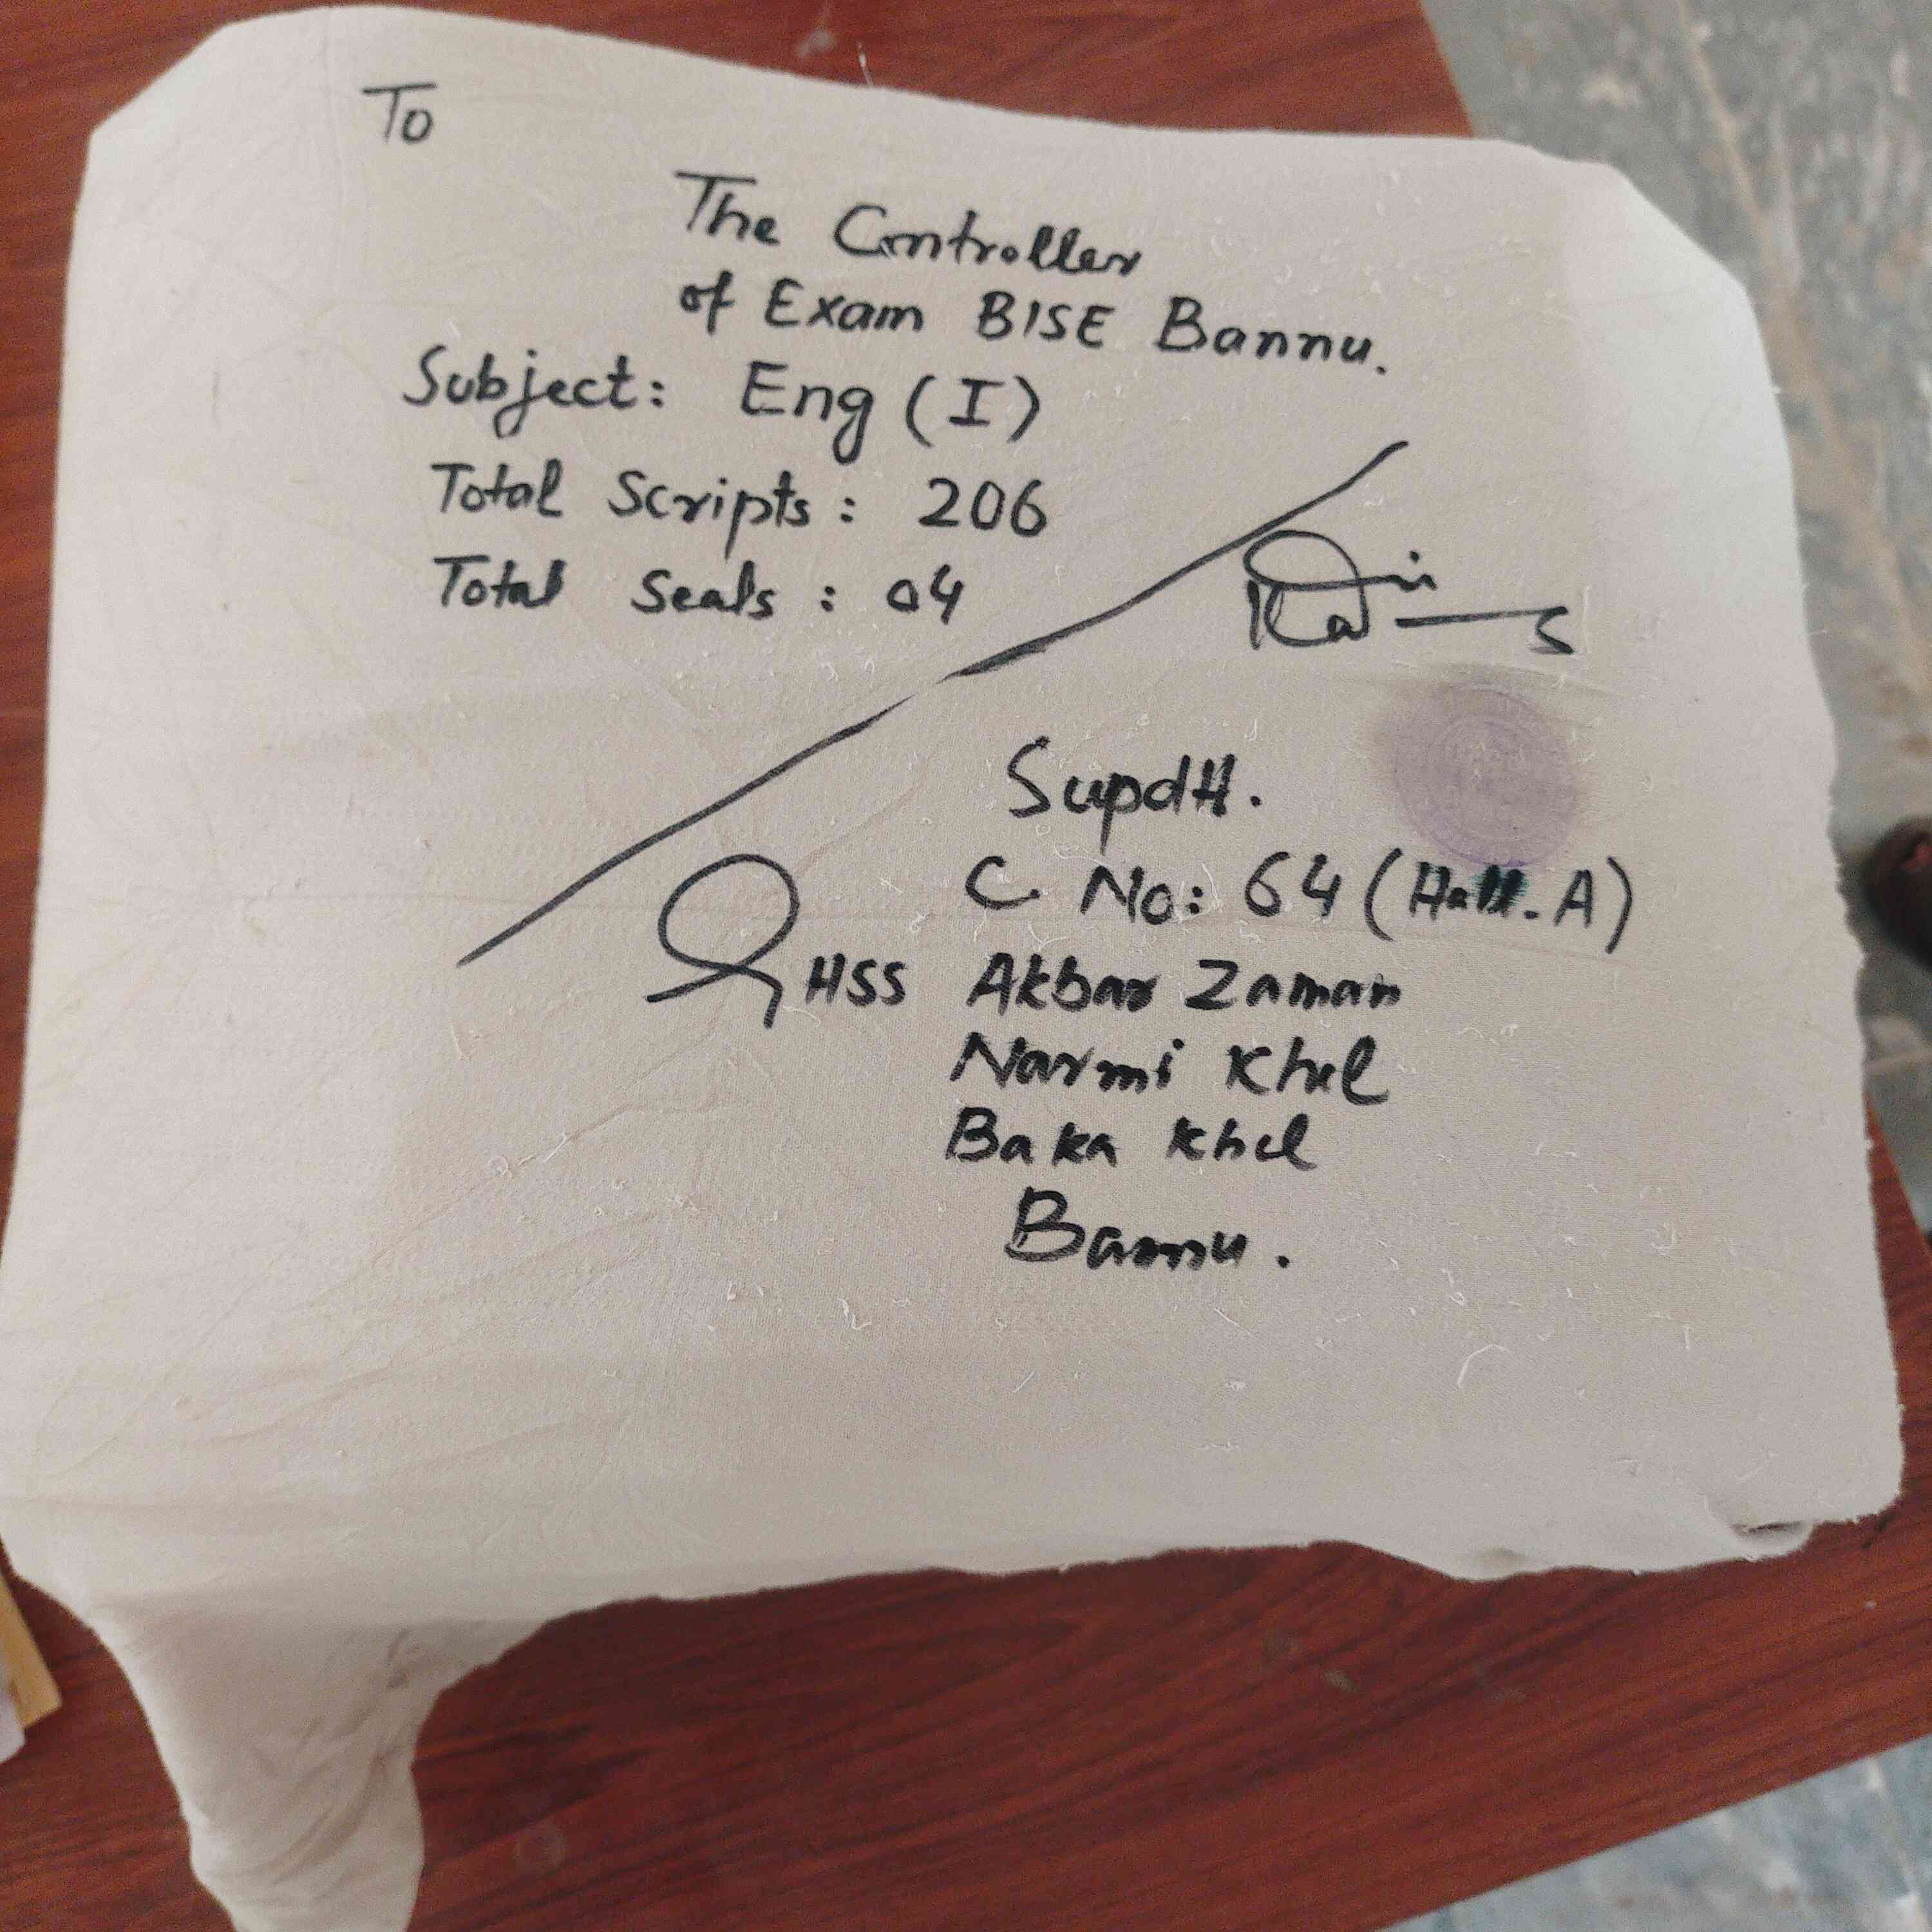 To
The Controller
of Exam BISE Bannu.
Subject: Eng (I)
Total Scripts: 206
Total Seals: 04
Supdtt.
C No: 64 (Hall. A)
GHSS Akbar Zaman
Narmi Khel
Baka Khel
Bannu.